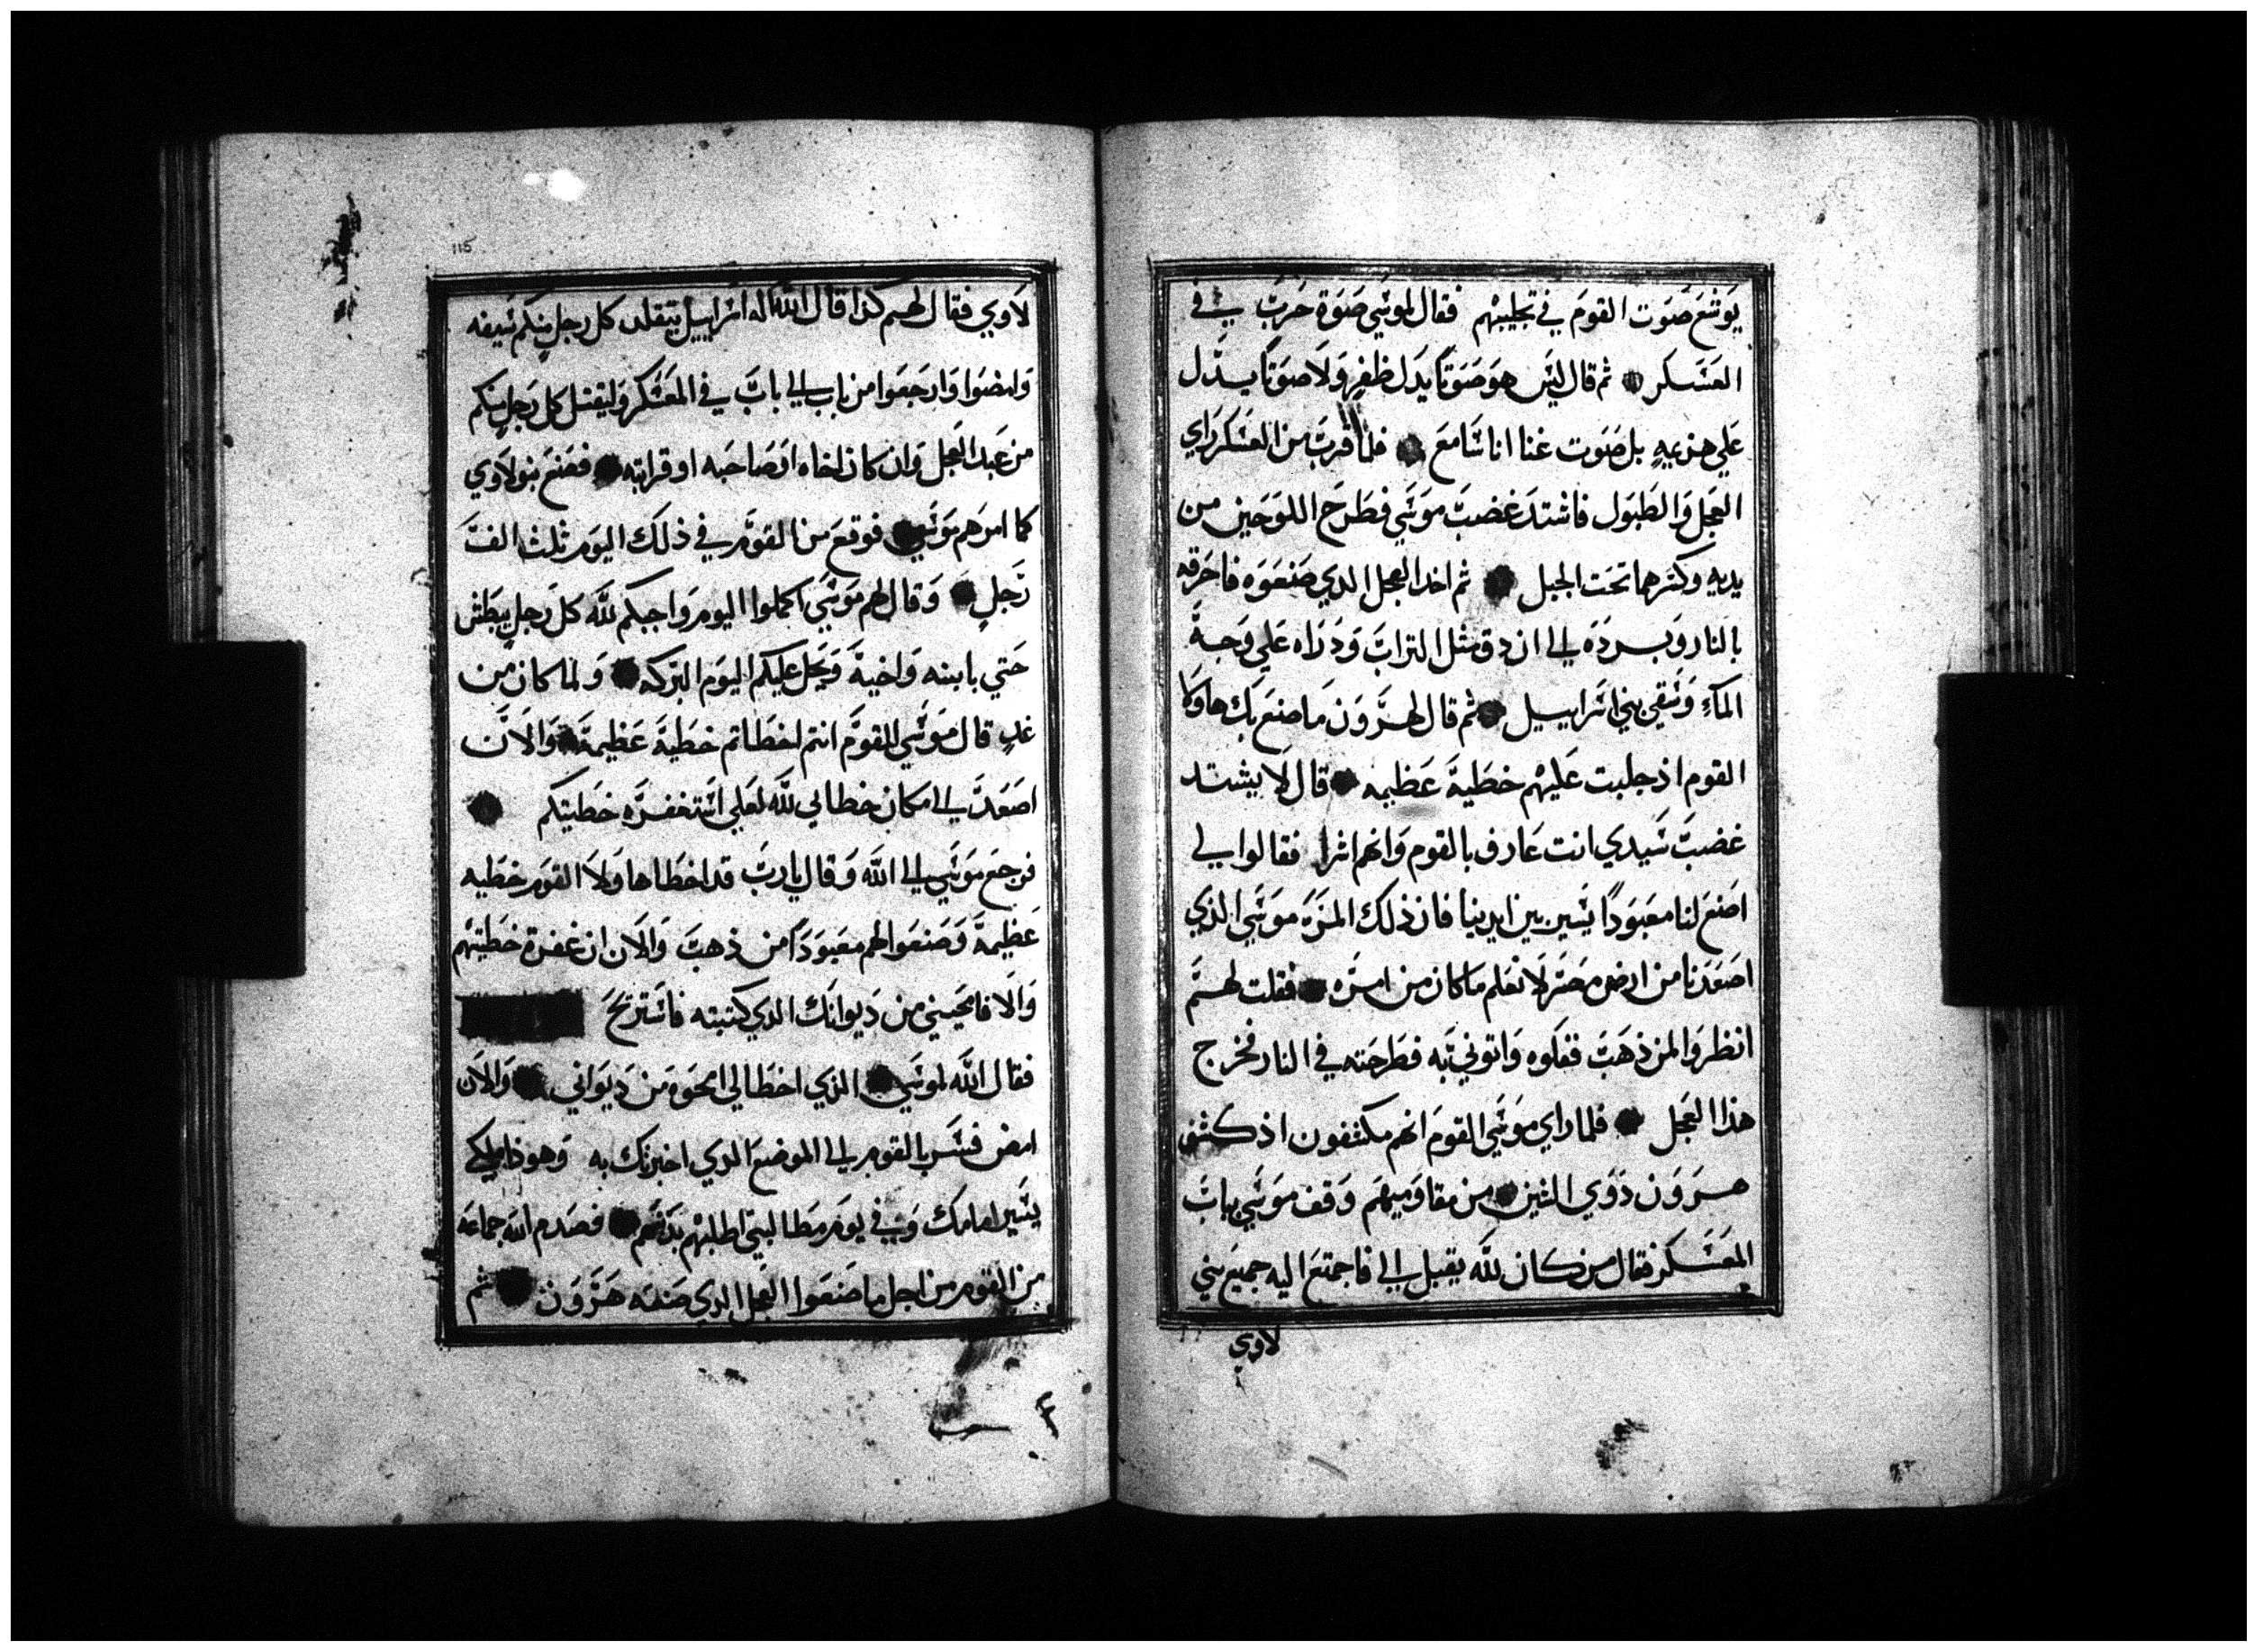 يوشع صوت القوم في تجليبهم فقال لموسي صوة حرب في
العسكر ثم قال ليس هو صوتا يدل ظفر ولا صوتا يدل
علي هزيمه بل صوت غنا انا سامع فلما قرب من العسكر راي
العجل والطبول فاشتد غضب موسي فطرح اللوحين من
يديه وكسرهما تحت الجبل ثم اخد العجل الدي صنعوه فاحرقه
بالنار وبرده الي ان دق مثل التراب ودراه علي وجه
المآء وسقي بني اسراييل ثم قال لهرون ما صنع بك هاولا
القوم اذ جلبت عليهم خطية عظيمه قال لا يشتد
غضب سيدي انت عارف بالقوم وانهم اشرا فقالوا لي
اصنع لنا معبودا يسير بين ايدينا فان ذلك المره موسي الذي
اصعدنا من ارض مصر لا نعلم ما كان من امره فقلت لهم
انظروا لمن ذهب ففكوه واتوني به فطرحته في النار فخرج
هذا العجل فلما راي موسي القوم انهم مكشفون اذ كشفه
هرون ذوي الشين من مقاوميهم وقف موسي بباب
المعسكر فقال من كان لله يقبل الي فاجتمع اليه جميع بني
لاوي
115
لاوي فقال لهم كذا قال الله اله اسراييل يتقلد كل رجل منكم سيفه
وامضوا وارجعوا من باب الي باب في المعسكر وليقتل كل رجل منكم
من عبد العجل وان كان اخاه او صاحبه او قرابته فصنع بنو لاوي
كما امرهم موسي فوقع من القوم في ذلك اليوم ثلث الف
رجل وقال لهم موسي اكملوا اليوم واجبكم لله كل رجل يبطش
حتي بابنه واخيه ويحل عليكم اليوم البركه ولما كان من
غد قال موسي للقوم انتم اخطاتم خطية عظيمة والان
اصعد الي مكان خطابي لله لعلي استغفره خطيتكم
فرجع موسي الي الله وقال يا رب قد اخطا هاولا القوم خطيه
عظيمة وصنعوا لهم معبودا من ذهب والان ان غفرة خطيتهم
والا فامحيني من ديوانك الدي كتبته فاستريح
فقال الله لموسي الذي اخطا لي امحوه من ديواني والان
امض فسر بالقوم الي الموضع الدي اخبرتك به وهوذا ملاكي
يسير امامك وفي يوم مطالبتي اطلبهم بذنبهم فصدم الله جماعه
من القوم من اجل ما صنعوا العجل الدي صنعه هرون ثم